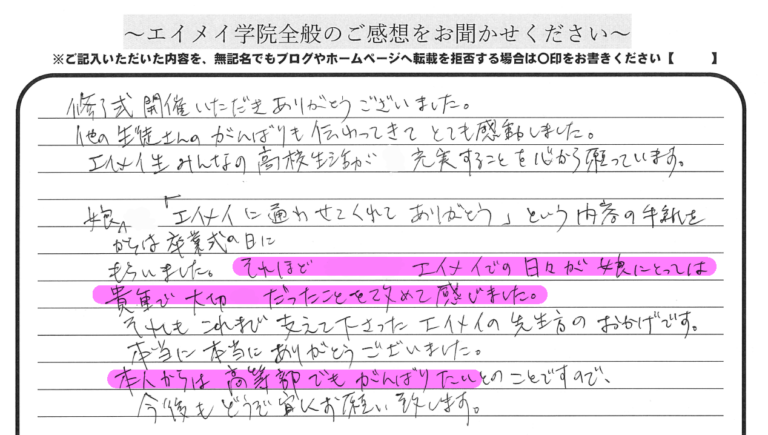 ～エイメイ学院全般のご感想をお聞かせください～
※ご記入いただいた内容を、無記名でもブログやホームページへ転載を拒否する場合は〇印をお書きください【　　】
修了式開催いただきありがとうございました。
他の生徒さんのがんばりも伝わってきてとても感動しました。
エイメイ生みんなの高校生活が 充実することを心から願っています。
娘 「エイメイに通わせてくれてありがとう」という内容の手紙を
からは卒業式の日に
もらいました。それほど エイメイでの日々が娘にとっては
貴重で大切 だったことを改めて感じました。
それもこれまで支えて下さったエイメイの先生方のおかげです。
本当に本当にありがとうございました。
本人からは高等部でもがんばりたいとのことですので、
今後もどうぞ宜しくお願い致します。